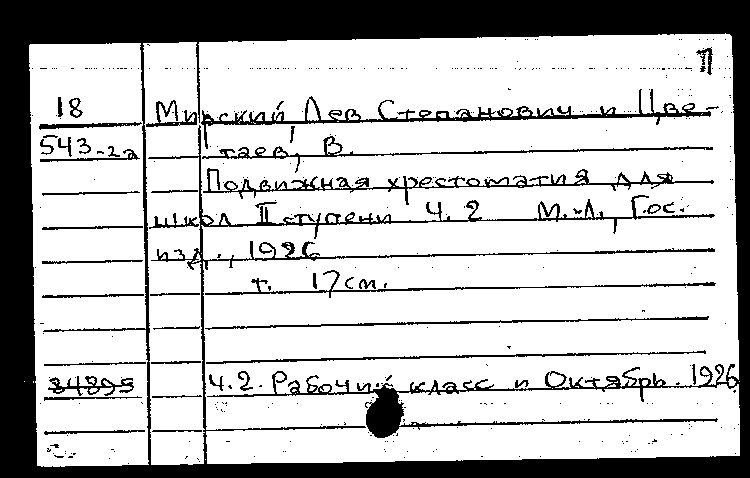 П
18 Мирский, Лев Степанович и Цве-
543-2а таев, В.
Подвижная хрестоматия для
школ II ступени Ч. 2 М.-Л., Гос.
изд., 1926
т. 17см.
34895 Ч.2. Рабочий класс и Октябрь. 1926